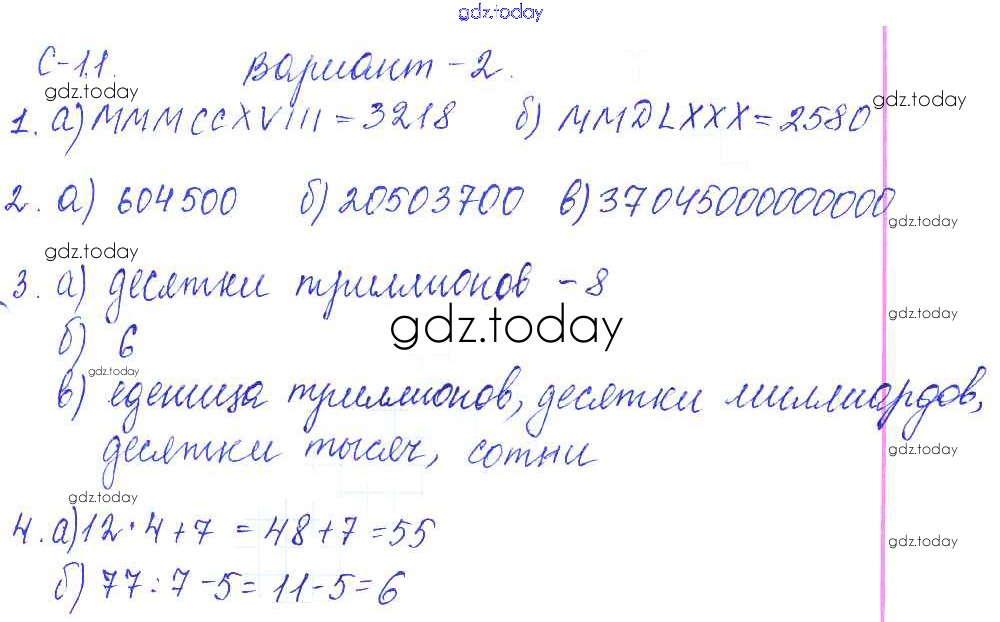 gdz.today
С-1.1. Вариант-2.
gdz.today gdz.today
1. а) MMMCCXVIII = 3218 б) MMDLXXX = 2580
2. а) 604500 б) 20503700 в) 37045000000000
gdz.today
gdz.today
3. а) десятки триллионов - 8
gdz.today
gdz.today
б) 6
gdz.today
в) еденица триллионов, десятки миллиардов,
десятки тысяч, сотни
gdz.today
gdz.today
4. а) 12·4+7 = 48+7 = 55
gdz.today
б) 77:7-5 = 11-5 = 6